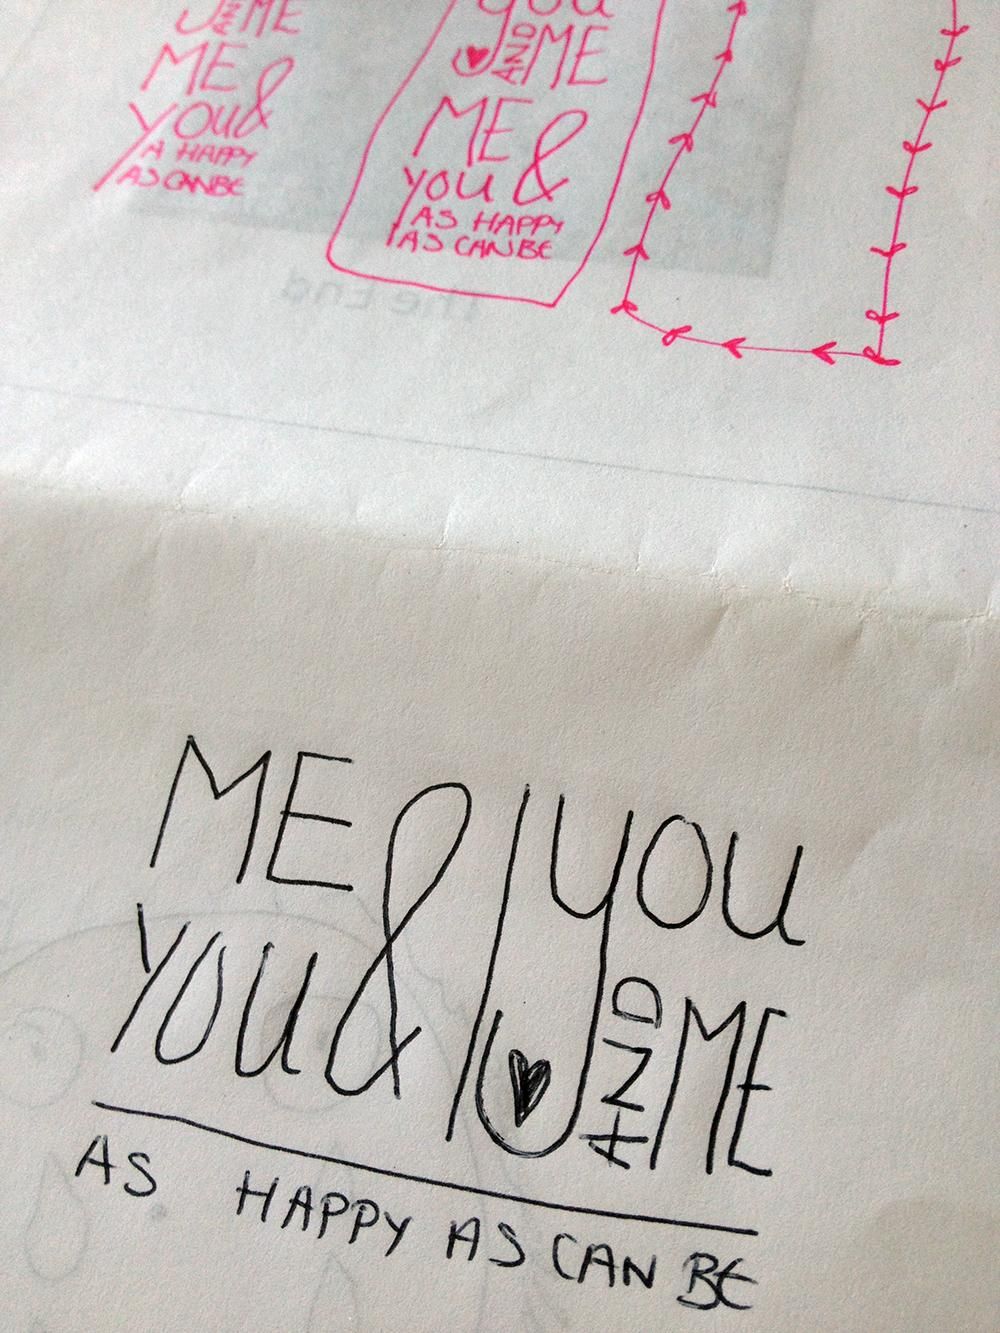 AND ME
ME
YOU &
A HAPPY
AS CAN BE
YOU
AND ME
ME &
YOU
AS HAPPY
AS CAN BE
The End
ME &
YOU
YOU
AND ME
AS HAPPY AS CAN BE